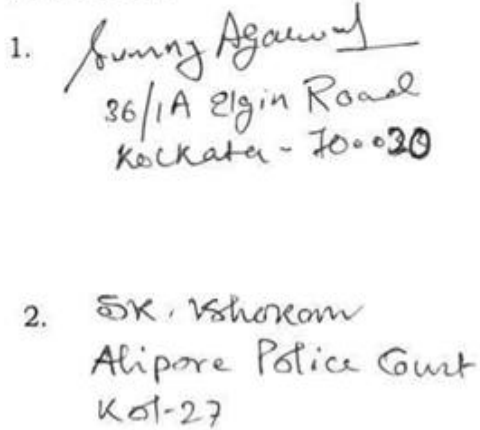 1. Sunny Agarwal
36/1A Elgin Road
Kolkata - 700020
2. SK.
Alipore Police Court
Kol-27